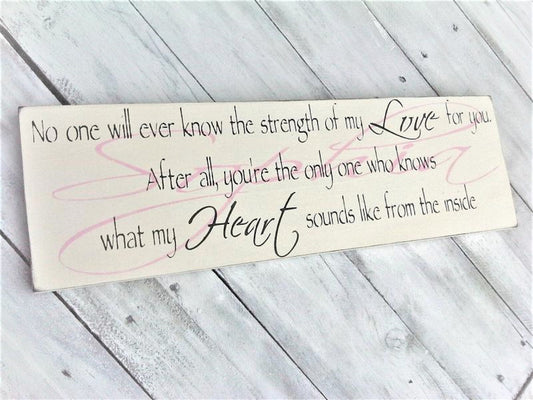 No one will ever know the strength of my Love for you.
After all, you're the only one who knows
what my Heart sounds like from the inside